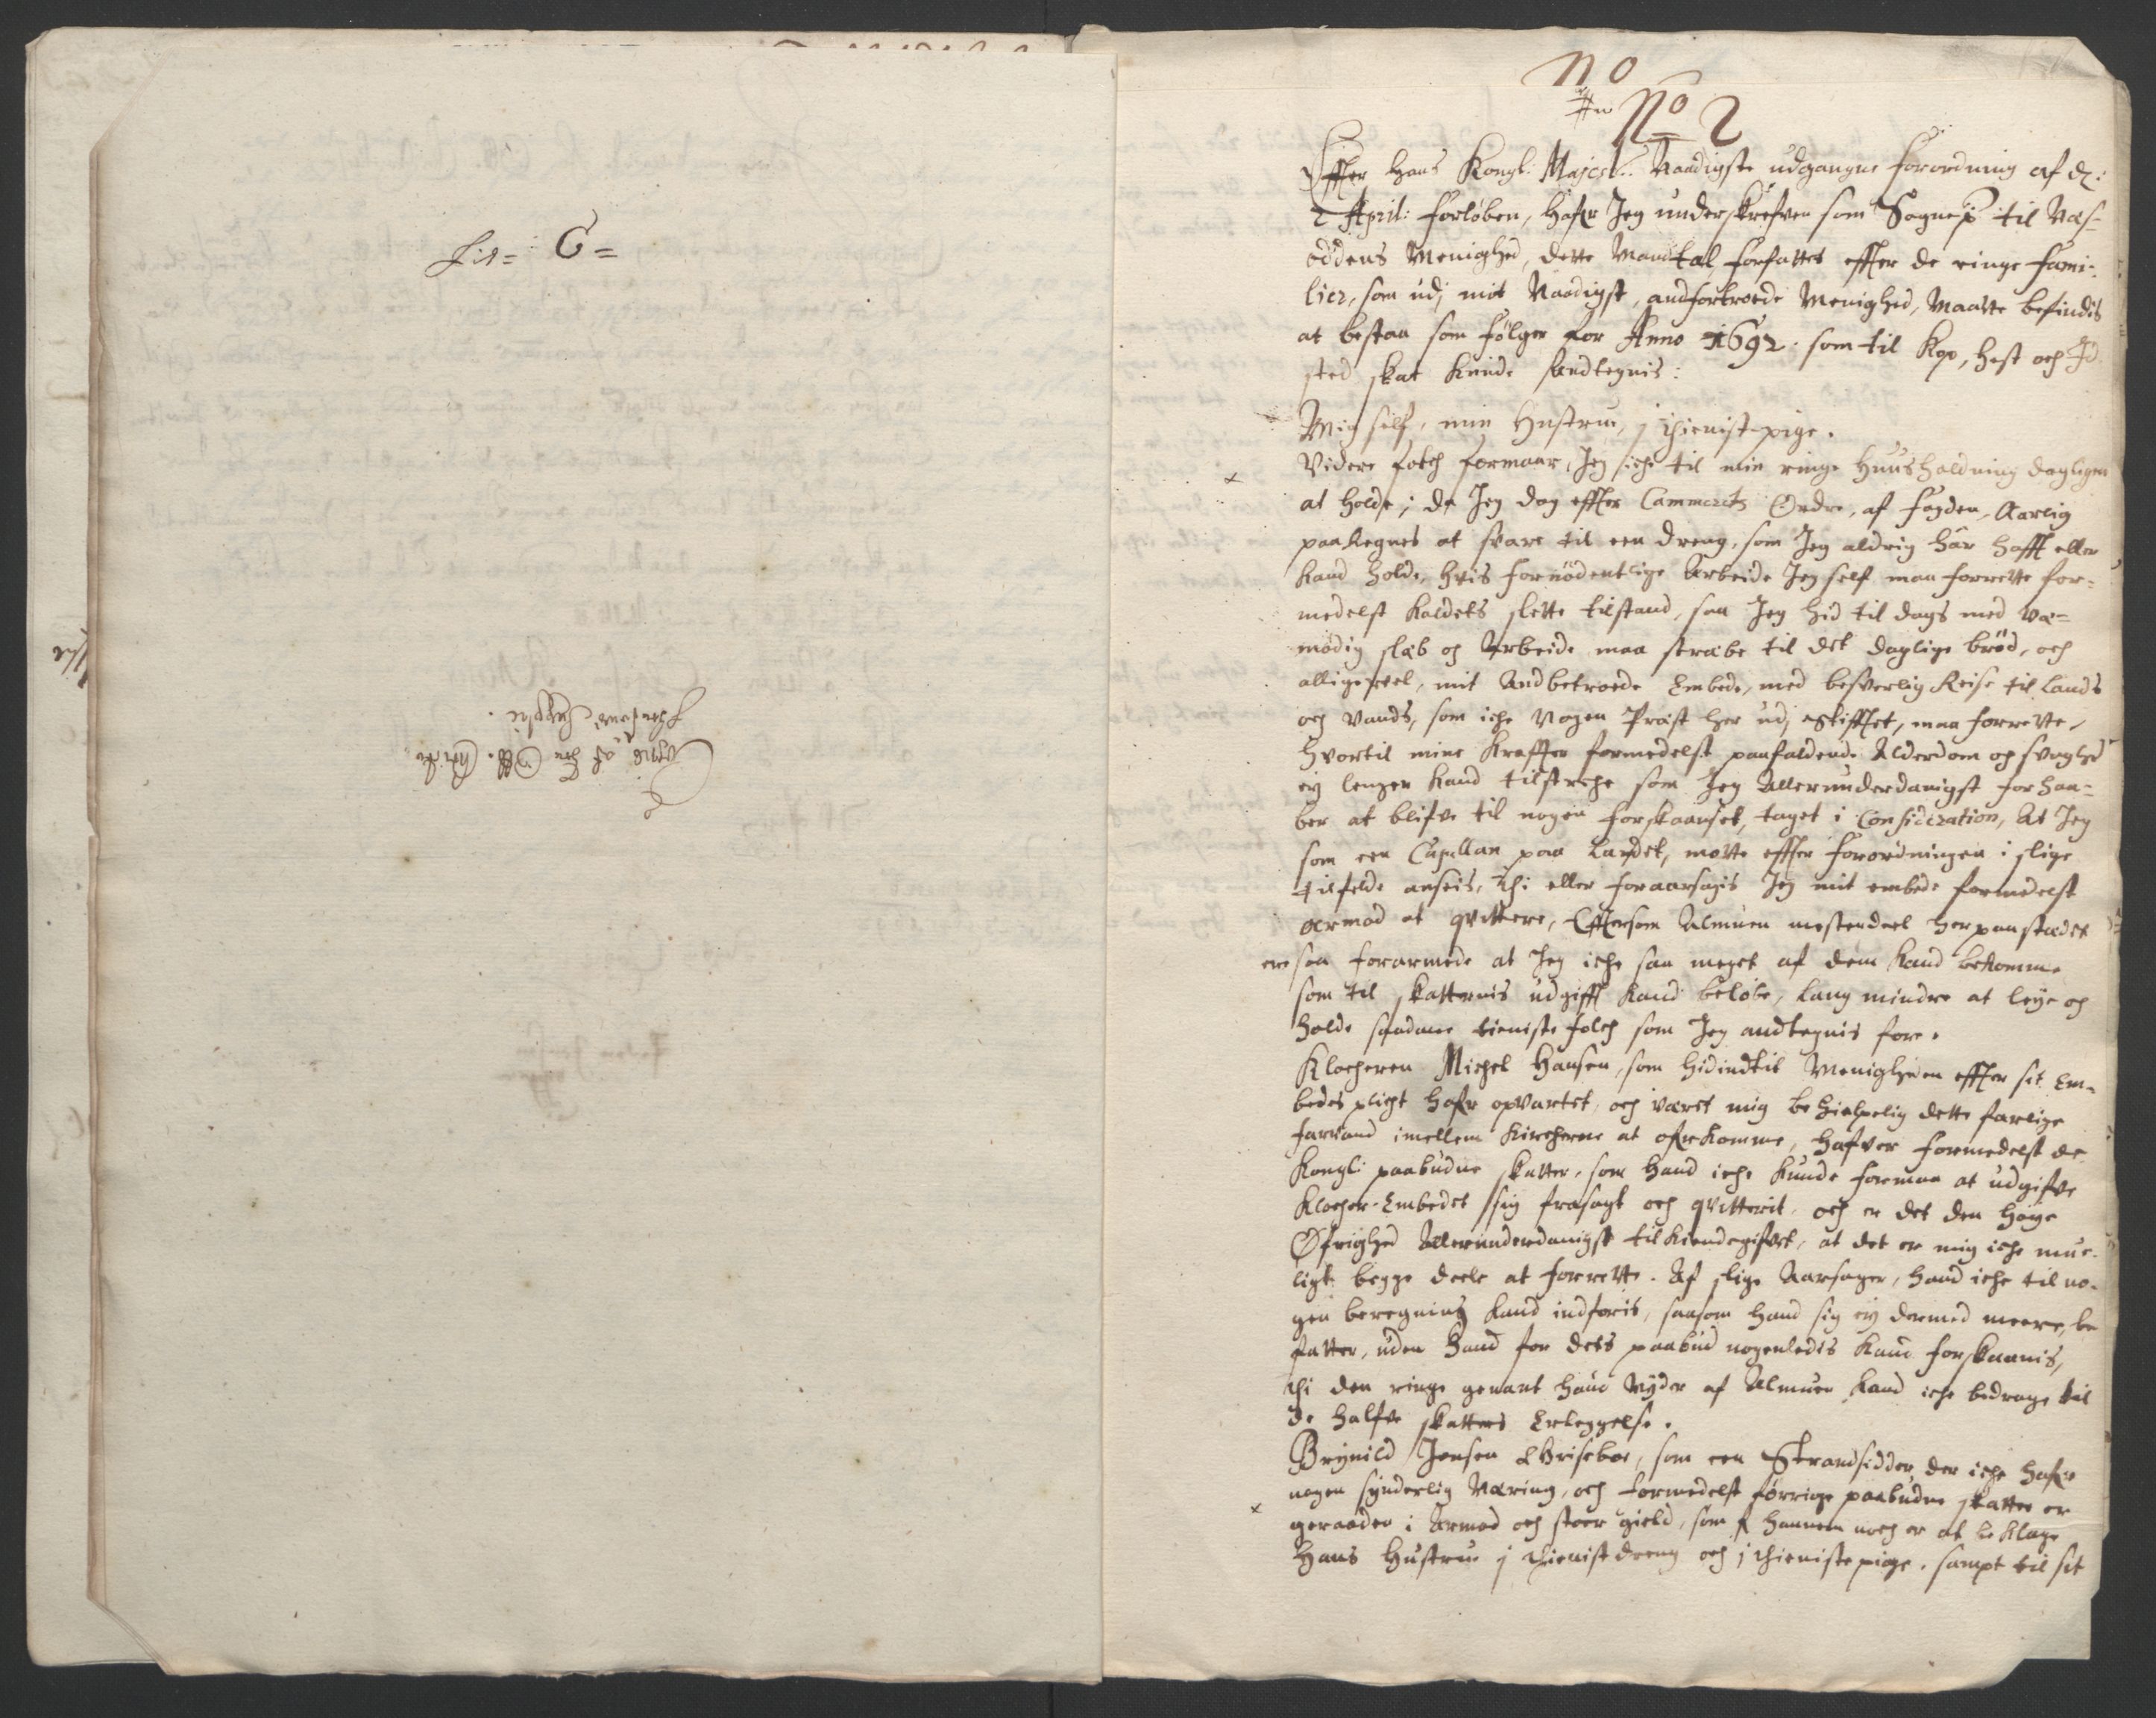 Lit= C=
No
No 2
Effter Hans Kongl: Majest:. Naadigste udgangne forordning af d:
2 April: forløben, hafr Jeg underskrefven som Sognep til Næs-
oddens Menighed, dette Mandtal forfattet effter de ringe fami-
lier, som udj mit Naadigst, andfortroede Menighed, Maatte befindis
at bestaa som følger for Anno 1692. som til Kop, hest och Jd
sted skat kunde andtegnis:
Mig self, min Hustrue, j thieniste pige.
Videre folch formaar Jeg iche til min ringe Huusholdning dagligen
at holde; da Jeg dog effter Cammerets Ordre, af fogden, Aarlig
paa Regnes at svare til een dreng, som Jeg aldrig hâr hafft eller
kand holde, hvis fornödentlige Arbeide Jeg self maa forrette for-
medelst kaldets slette tilstand, saa Jeg hid til dags med væ-
mødig slæb og Arbeide maa stræbe til det daglige bröd, och
alligevel, mit Andbetroede Embede, med besverlig Reise til Lands
och Vands, som iche Nogen Præst her udj Stifftet, maa forrette,
hvortil mine Kraffter formedelst paafaldende Alderdom og svaghed
ej lenger kand tilstreche som Jeg Allerunderdanigst forhaa-
ber at blifve til nogen forskaanset, taget i Consideration, At Jeg
som een Capellan paa Landet, motte effter forordningen i slige
tilfelde anseis, thi eller foraarsagis Jeg mit embede formedelst
armod at qvittere, Effersom Almuen mestendeel her paa stædet
ere saa forarmede at Jeg iche saa meget af dem kand bekomme
som til skatternis udgifft kand belöbe, lang mindre at leye og
holde saadanne tieniste folch som Jeg andtegnis fore.
Klocheren Michel Hansen, som hidindtil Menigheden effter sit Em-
bedes plicht hafr opvartet, och været mig behielpelig dette farlige
farvand imellem Kircherne at ofrkomme, hafver formedelst de
Kongl: paabudne skatter, som hand iche kunde formaa at udgifve
Klocher-Embedet sig frasagt och qvitterit, och er det den höye
Øfrighed Allerunderdanigst tilkiendegifvet, at det er mig iche mue-
ligt begge deele at forrette. Af slige Aarsager, hand iche til no-
gen beregning kand indföris, saasom hand sig ej dermed meere, be
fatter, uden hand for dets paabud nogenledis kand forskaanis,
thi den ringe genant hand Nyder af Almuen kand iche bedrage til
de halfve skatters Erleggelse.
Brynild Jensen, som een Strandsidder, der iche hafr
nogen synderlig Næring, och formedelst forrige paabudne skatter er
geraaden i Armod och stoer gield, som hannem noch er at beklage
Hans Hustrue j thienist dreng och j thieniste pige. sampt til sit